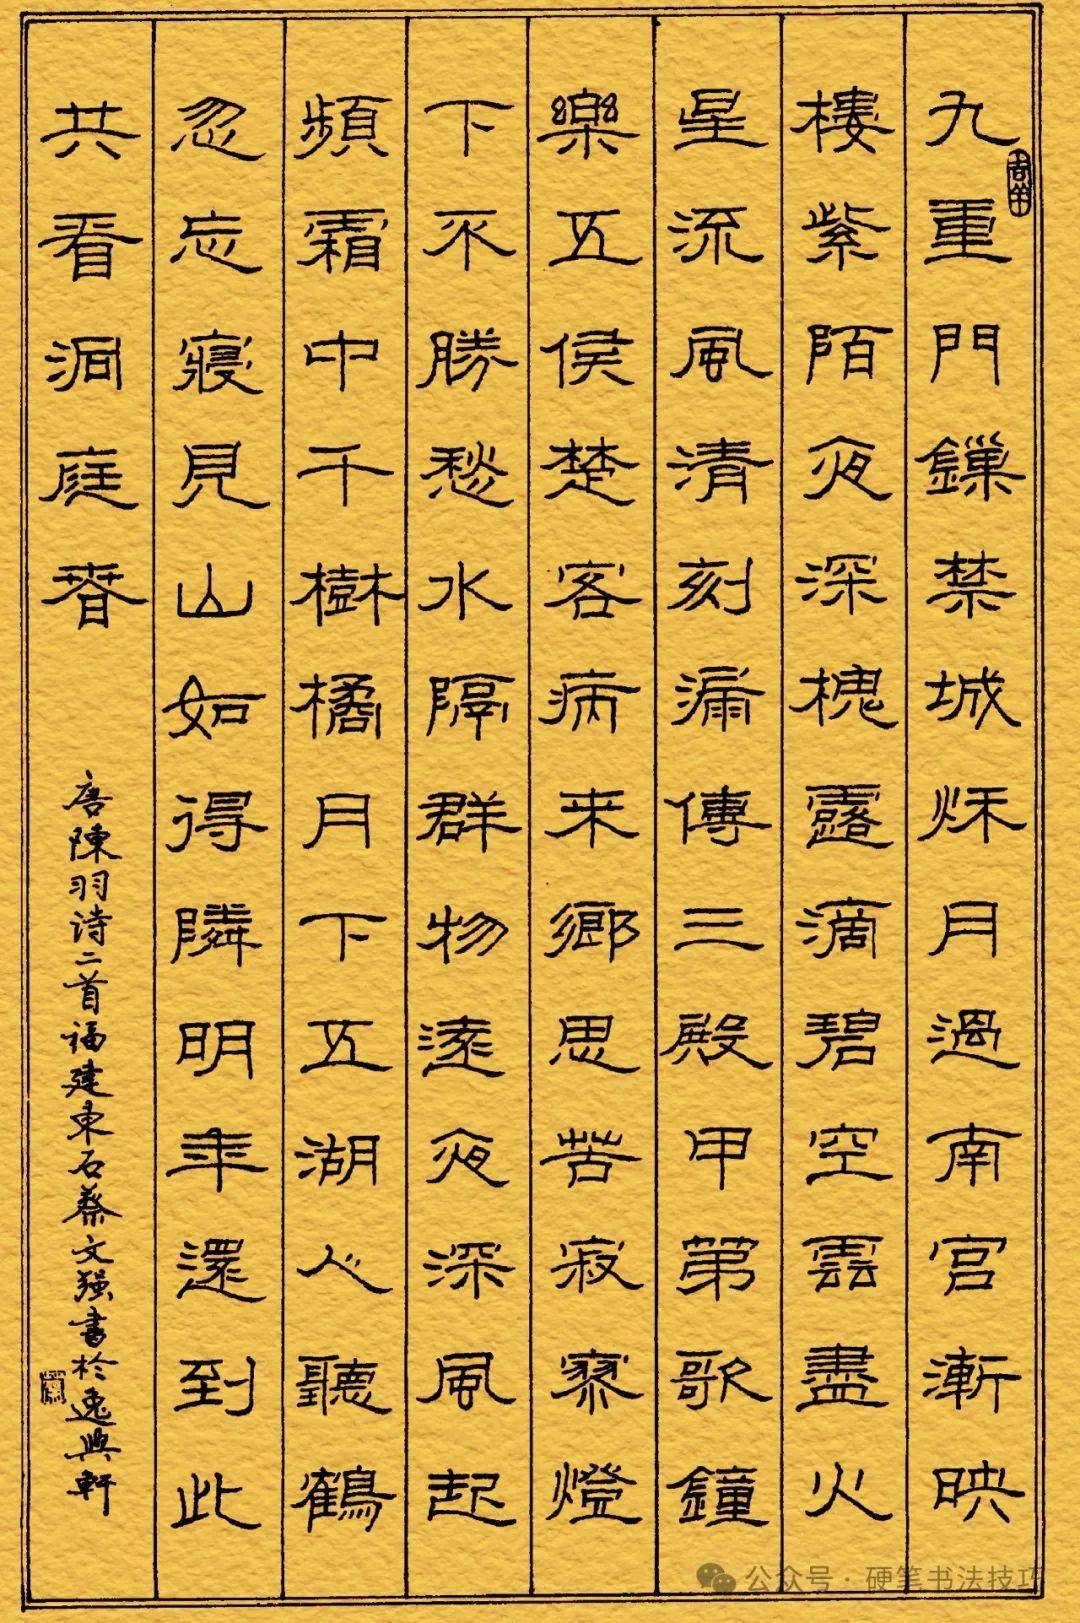 九重門鏁禁城秌月過南宮漸映
樓紫陌夜深槐露滴碧空雲盡火
星流風清刻漏傳三殿甲第歌鐘
樂五侯楚客病来鄉思苦寂寥燈
下不勝愁水隔群物遠夜深風起
頻霜中千樹橘月下五湖人聽鶴
忽忘寢見山如得隣明年還到此
共看洞庭春
唐陳羽诗二首福建東石蔡文强書於逸興軒
公众号·硬笔书法技巧